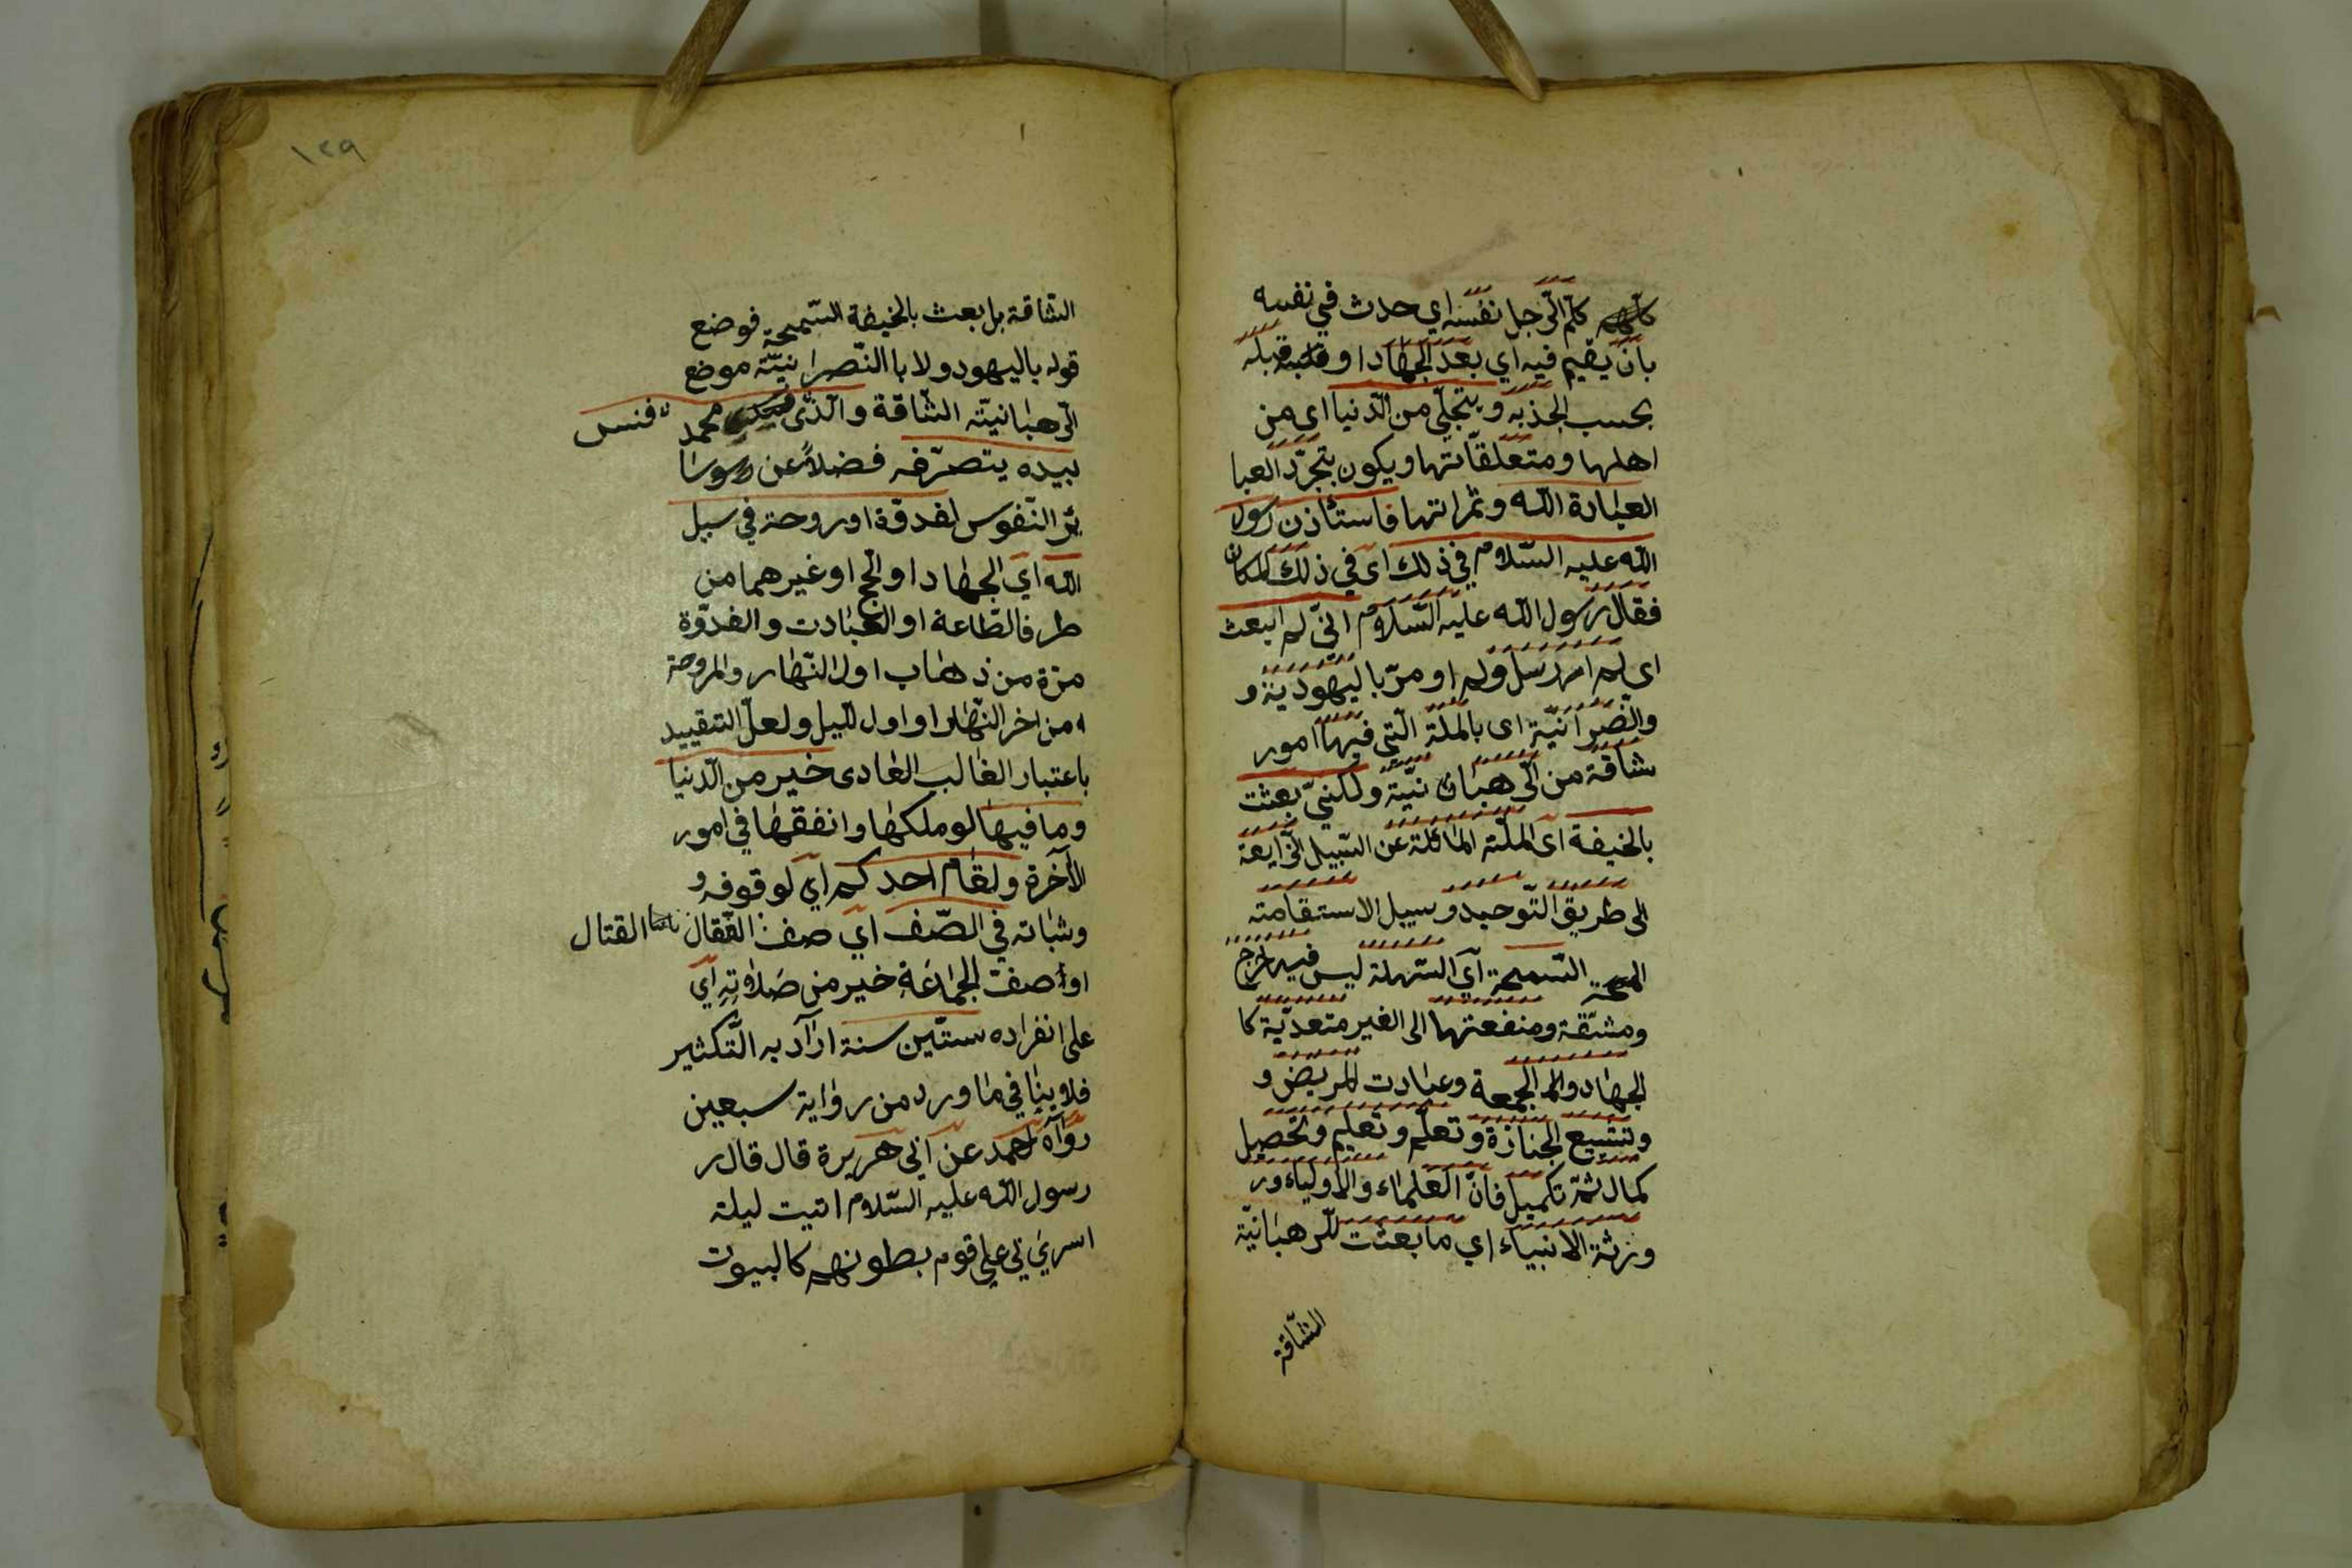 كلّم الرّجل نفسه اي حدث في نفسه
بان يقيم فيه اي بعد الجهاد او قبله
بحسب الجذبة و يتجلّي من الدّنيا اي من
اهلها ومتعلّقاتها ويكون بتجرّد العبا
العبادة الله وثمراتها فاستئاذن رسول
الله عليه السّلام في ذلك اي في ذلك المكان
فقال رسول الله عليه السّلام انّي لم ابعث
اي لم ارسل ولم اومر باليهودية و
والنّصرانيّة اي بالملّة الّتي فيها امور
شاقة من الرّهبان نيّة ولكنّي بعثت
بالحنيفة اي الملّة المائلة عن السّبيل الزّايعة
الى طريق التّوحيد وسبيل الاستقامته
السّمحة اي السّهلة ليس فيها حرج
ومشقّة ومنفعتها الى الغير متعديّة كا
الجهاد والجمعة وعبادت المريض و
وتشييع الجنازة وتعلّم وتعليم وتحصيل
كمال ثمّ تكميل فانّ العلماء والاولياء ور
ورثة الانبياء اي ما بعثت للرهبانيّة
الشّاقة
١٢٩
الشّاقة بل بعث بالحنيفة السّمحة فوضع
قوله باليهود ولا با النّصرانيّة موضع
الرّهبانيّة الشّاقة والّذي محمد فنس
بيده يتصرّفه فضلاً عن سا
ئر النّفوس لغدوّة اوروحة في سبيل
الله اي الجهاد او الحج او غيرهما من
طرف الطّاعة او العبادت والغدوّة
مرّة من ذهاب اول النّهار والمروحة
من اخر النّهار او اول اللّيل ولعلّ التقييد
باعتبار الغالب العادى خير من الدّنيا
وما فيها لو ملكها وانفقها في امور
الآخرة ولقام احدكم اي لوقوفه و
وثباته في الصّف اي صف القتال
او صفّ الجماعة خير من صلاوته اي
على انفراده ستّين سنة اراد به التّكثير
فلا ينافي ما ورد من رواية سبعين
رواه احمد عن ابي هريرة قال قال ر
رسول الله عليه السّلام اتيت ليلة
اسري لي علي قوم بطونهم كالبيوت